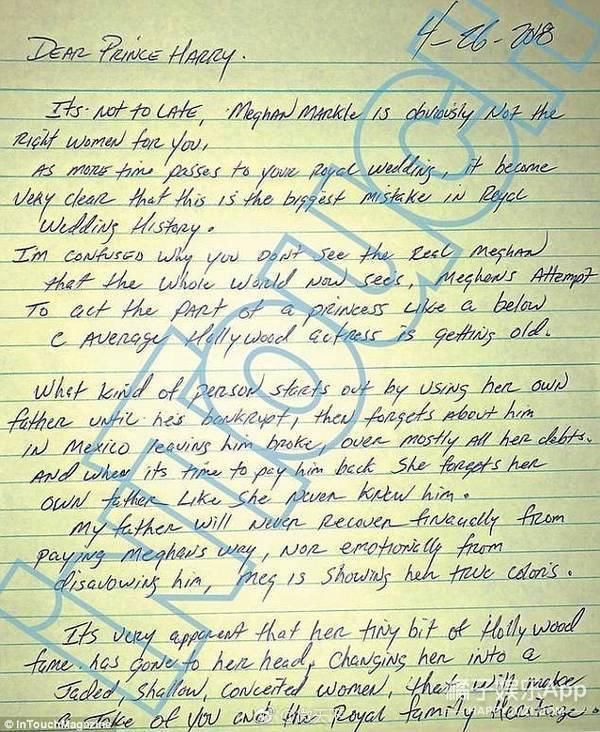 4-26-2018
DEAR PRINCE HARRY.
ITS NOT TO LATE, MEGHAN MARKLE IS obviously Not the
Right women for you,
AS MORE time passes to your Royal wedding, it became
Very clear that this is the biggest mistake in Royal
Wedding History.
IM CONFUSED Why you DON'T See the Real Meghan
that the whole world Now sees, Meghans Attempt
To act the PART of a princess Like a below
C AVERAGE Hollywood actress is getting old.
What kind of person starts out by using her own
father until he's bankrupt, then forgets About him
IN MEXICO leaving him broke, over mostly All her debts.
AND when its time to pay him back She forgets her
OWN father Like She Never Knew him.
My father will Never Recover financially from
paying Meghans way, NOR emotionally from
disavowing him, Meg is Showing her true colors.
Its very apparent that her tiny bit of Hollywood
fame has gone to her head, Changing her into a
Jaded, Shallow, conceited women, that will make
a Joke of you and the Royal family Heritage.
INTOUCH
© InTouchMagazine
橘子娱乐App